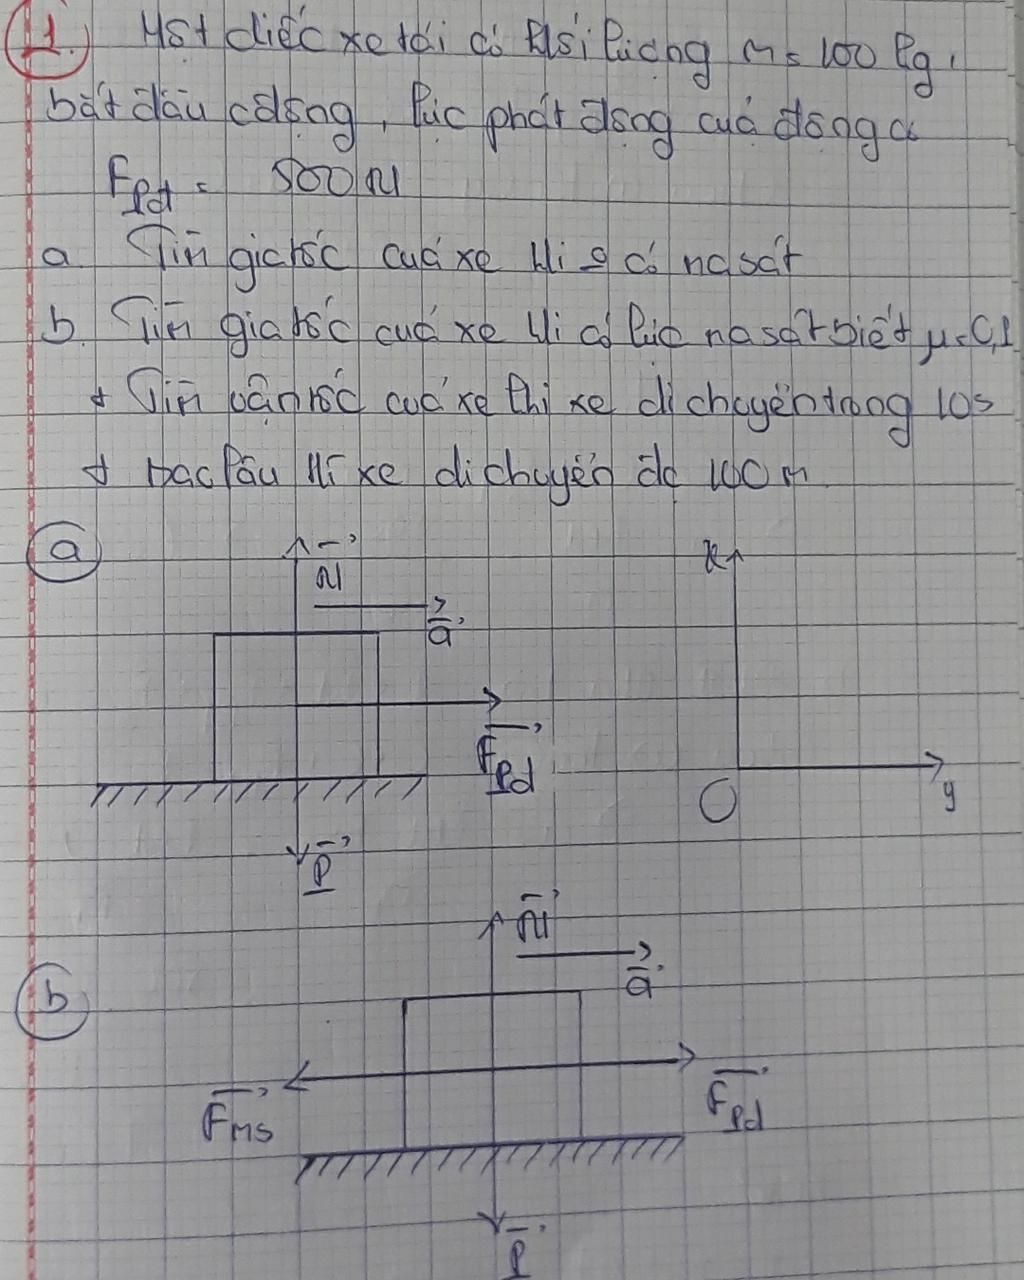 1. Một chiếc xe tải có khối lượng m = 100 kg,
bắt đầu cđộng, lực phát động của động cơ
Fpd = 500 N
a Tính gia tốc của xe khi o có ma sát
b. Tính gia tốc của xe khi có lực ma sát biết μ = 0,1
+ Tính vận tốc của xe thi xe di chuyển trong 10s
+ bao lâu khi xe di chuyển đc 100 m
a
N
a
x
Fpd
O
y
P
b
N
a
Fms
Fpd
P